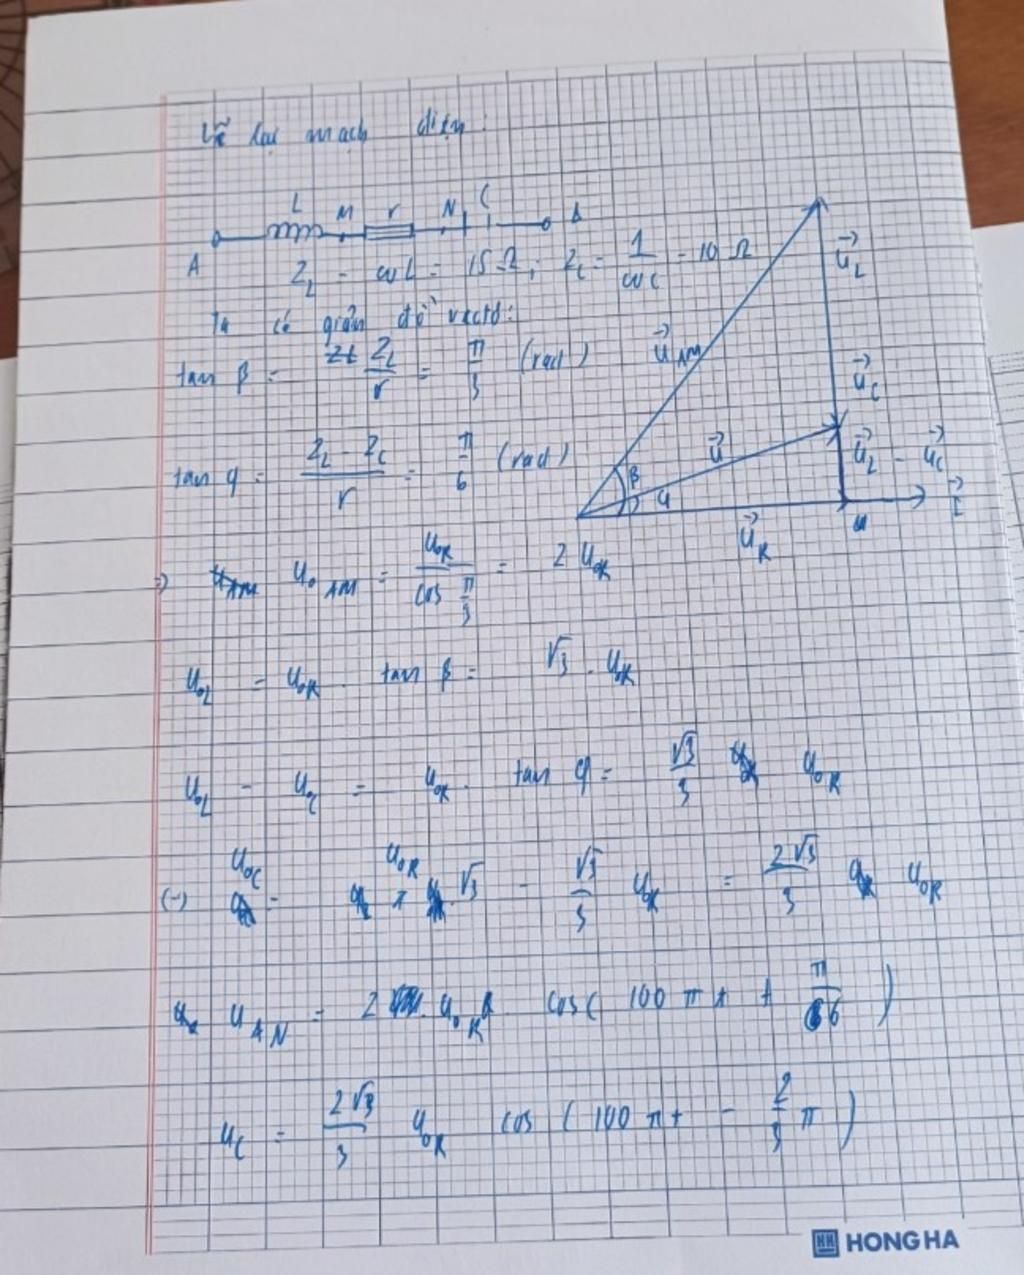 Vẽ lại mạch điện:
L M r N C B
A
Z_L = ωL = 15Ω; Z_C = 1/ωC = 10Ω
Ta có giản đồ vectơ:
tan β = Z_L/r = π/3 (rad)
tan φ = (Z_L - Z_C)/r = π/6 (rad)
U⃗_L
U⃗_AM
U⃗_C
U⃗
U⃗_L - U⃗_C
β
φ
I⃗
U⃗_R
=> U_0AM = U_0R/cos π/3 = 2 U_0R
U_0L = U_0R . tan β = √3 . U_0R
U_0L - U_0C = U_0R . tan φ = √3/3 U_0R
(-) U_0C = U_0R √3 - √3/3 U_0R = 2√3/3 U_0R
u_AN = 2 . U_0R cos(100πt + π/6)
u_C = 2√3/3 U_0R cos(100πt - 2/3 π)
HONG HA